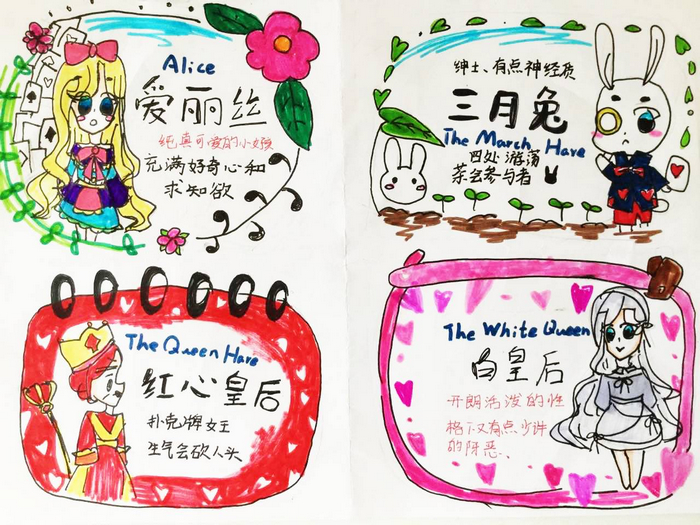 Alice
爱丽丝
纯真可爱的小女孩
充满好奇心和
求知欲
绅士、有点神经质
三月兔
The March Hare
四处游荡
茶会参与者
The Queen Hare
红心皇后
扑克牌女王
生气会砍人头
The White Queen
白皇后
开朗活泼的性
格不又有点少许
的邪恶、